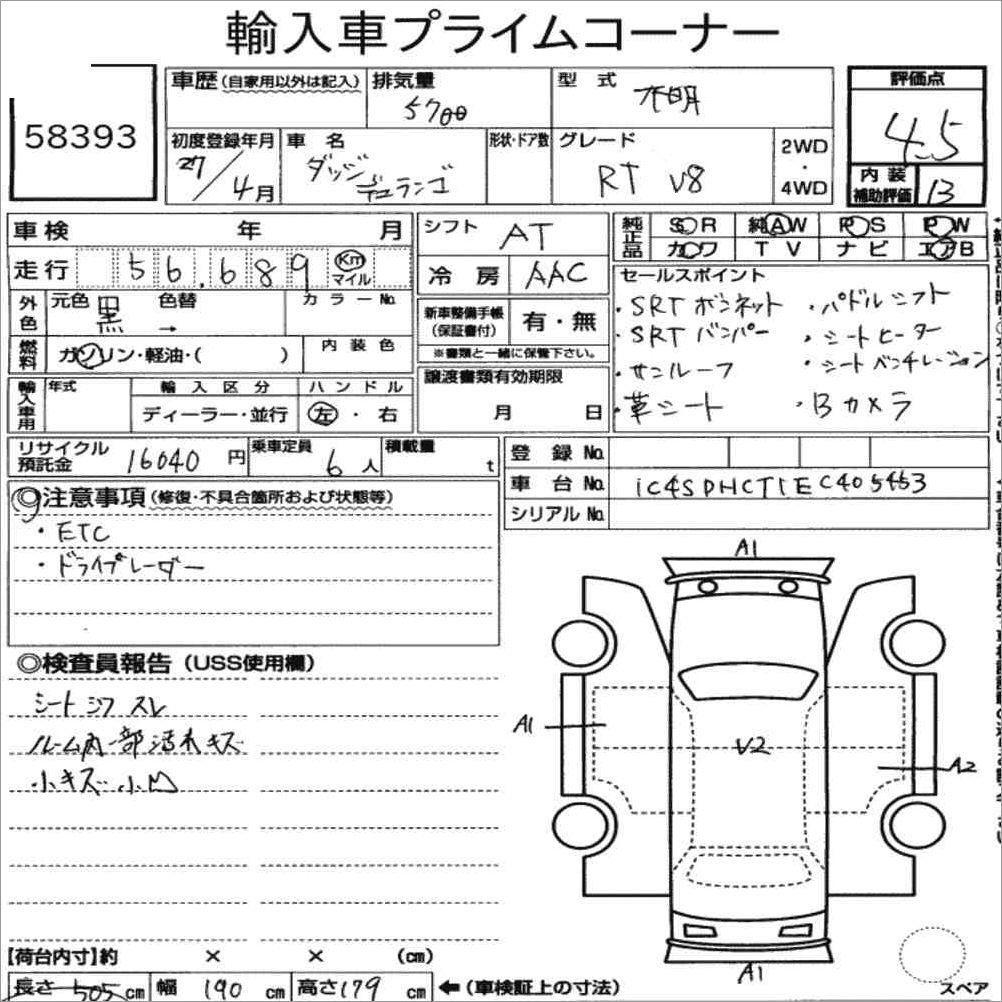 輸入車プライムコーナー
58393
車歴(自家用以外は記入)
排気量
5700
型式
不明
評価点
4.5
初度登録年月
27/4月
車名
ダッジデュランゴ
形状・ドア数
グレード
RT V8
2WD
・
4WD
内装
補助評価
B
車検 年 月
シフト
AT
純正品
SR 純AW PS PW
カワ TV ナビ エアB
走行
56,689
Km
マイル
冷房
AAC
セールスポイント
・SRTボンネット ・パドルシフト
・SRTバンパー ・シートヒーター
・サンルーフ ・シートベンチレーション
・革シート ・Bカメラ
外色
元色 黒
色替 →
カラーNo.
新車整備手帳
(保証書付)
有・無
※書類と一緒に保管下さい。
燃料
ガソリン・軽油・( )
内装色
輸入車用
年式
輸入区分
ディーラー・並行
ハンドル
左・右
譲渡書類有効期限
月 日
リサイクル
預託金
16040円
乗車定員
6人
積載量
t
登録No.
車台No.
1C4SDHCT1EC405453
シリアルNo.
◎注意事項(修復・不具合箇所および状態等)
・ETC
・ドライブレーダー
◎検査員報告(USS使用欄)
シートシワスレ
ルーム内一部汚れキズ
小キズ小凹
A1
A1
V2
A2
A1
【荷台内寸】約 × × (cm)
長さ 505 cm
幅 190 cm
高さ 179 cm
←(車検証上の寸法)
スペア